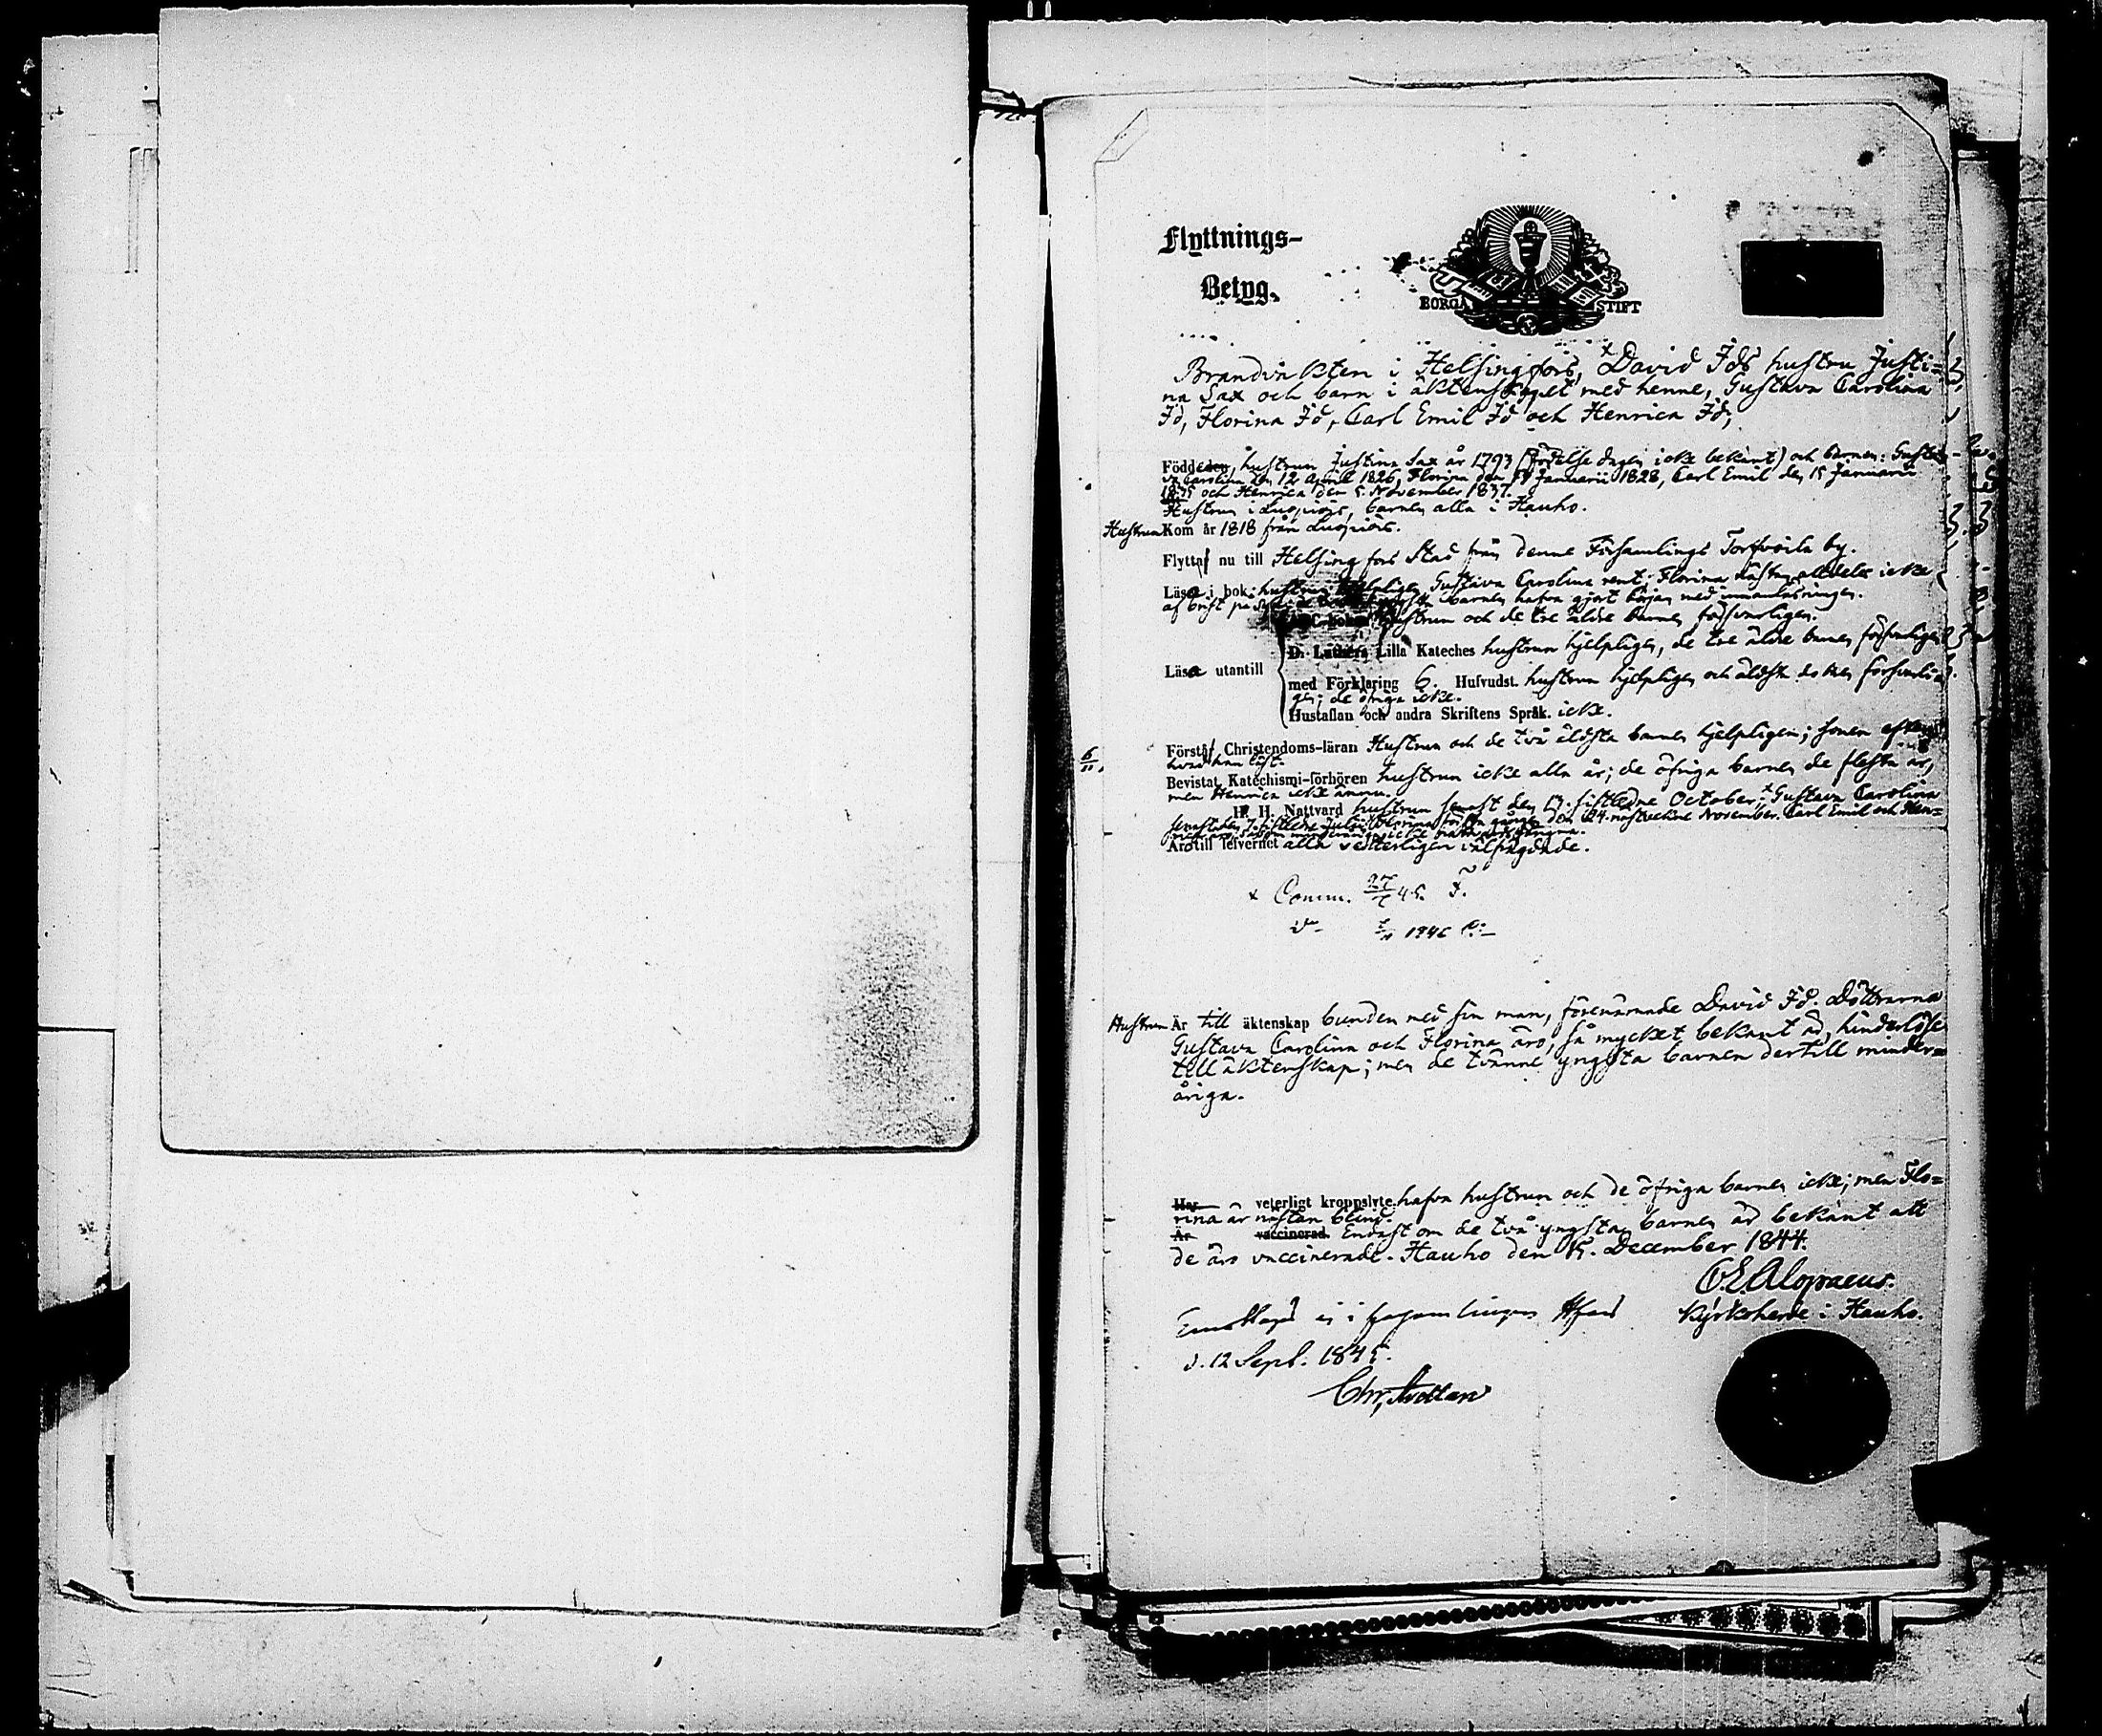 Flyttnings-
Betyg.
BORGÅ STIFT
Brandvakten i Helsingfors, David Id's hustru Justi=
na Sax och barn i äktenskapet med henne, Gustava Carolina
Id, Florina Id, Carl Emil Id och Henrica Id;
Född den, hustrun Justina Sax år 1793 (födelse dagen icke bekant) och barnen: Gusta-
va Carolina den 12 April 1826, Florina den Januarii 1828, Carl Emil den 15 Januarii
1835 och Henrica den 5. November 1837.
Hustrun i Luopiois, barnen alla i Hauho.
Hustrun Kom år 1818 från Luopiois.
Flyttar nu till Helsingfors Stad från denne Församlings Torfvoila by.
Läsa i bok: hustrun hjelpligen, Gustava Carolina rent; Florina nästan alldeles icke
af brist på barnen hafva gjort början med innanläsningen.
ABC-boken hustrun och de tre äldre barnen försvarligen.
D. Luthers Lilla Kateches hustrun hjelpligen, de tre äldre barnen försvarligen
Läsa utantill
med Förklaring 6. Hufvudst. hustrun hjelpligen och äldsta dottren försvarli=
gen; de öfriga icke.
Hustaflan och andra Skriftens Språk. icke.
Förstår Christendoms-läran Hustrun och de två äldsta barnen hjelpligen; sonen efter
hvad han läst.
Bevistat Katechismi-förhören hustrun icke alla år; de öfriga barnen de flesta år,
men Henrica icke ännu.
H. H. Nattvard hustrun senast den 13. sistledne October, Gustava Carolina
senast den 7. sistledne Julii, Florina första gången den 24. nästledne November. Carl Emil och Hen=
rica äro såsom minderåriga icke
Äro till lefvernet alla vetterligen välfrägdade.
x Comm. 27/7 45. F.
1846
Hustrun Är till äktenskap bunden med sin man, förenämnde David Id. Döttrarna
Gustava Carolina och Florina äro, så mycket bekant är, hinderlöse
till äktenskap; men de tvänne yngsta barnen dertill minder=
åriga.
Har veterligt kroppslyte hafva hustrun och de öfriga barnen icke; men Flo=
rina är nästan blind.
Är vaccinerad. Endast om de två yngsta barnen är bekant att
de äro vaccinerade. Hauho den 15. December 1844.
C. E. Alopaeus.
Kyrkoherde i Hauho.
i församlingen Hfors
d. 12 Sept. 1845.
Chr.